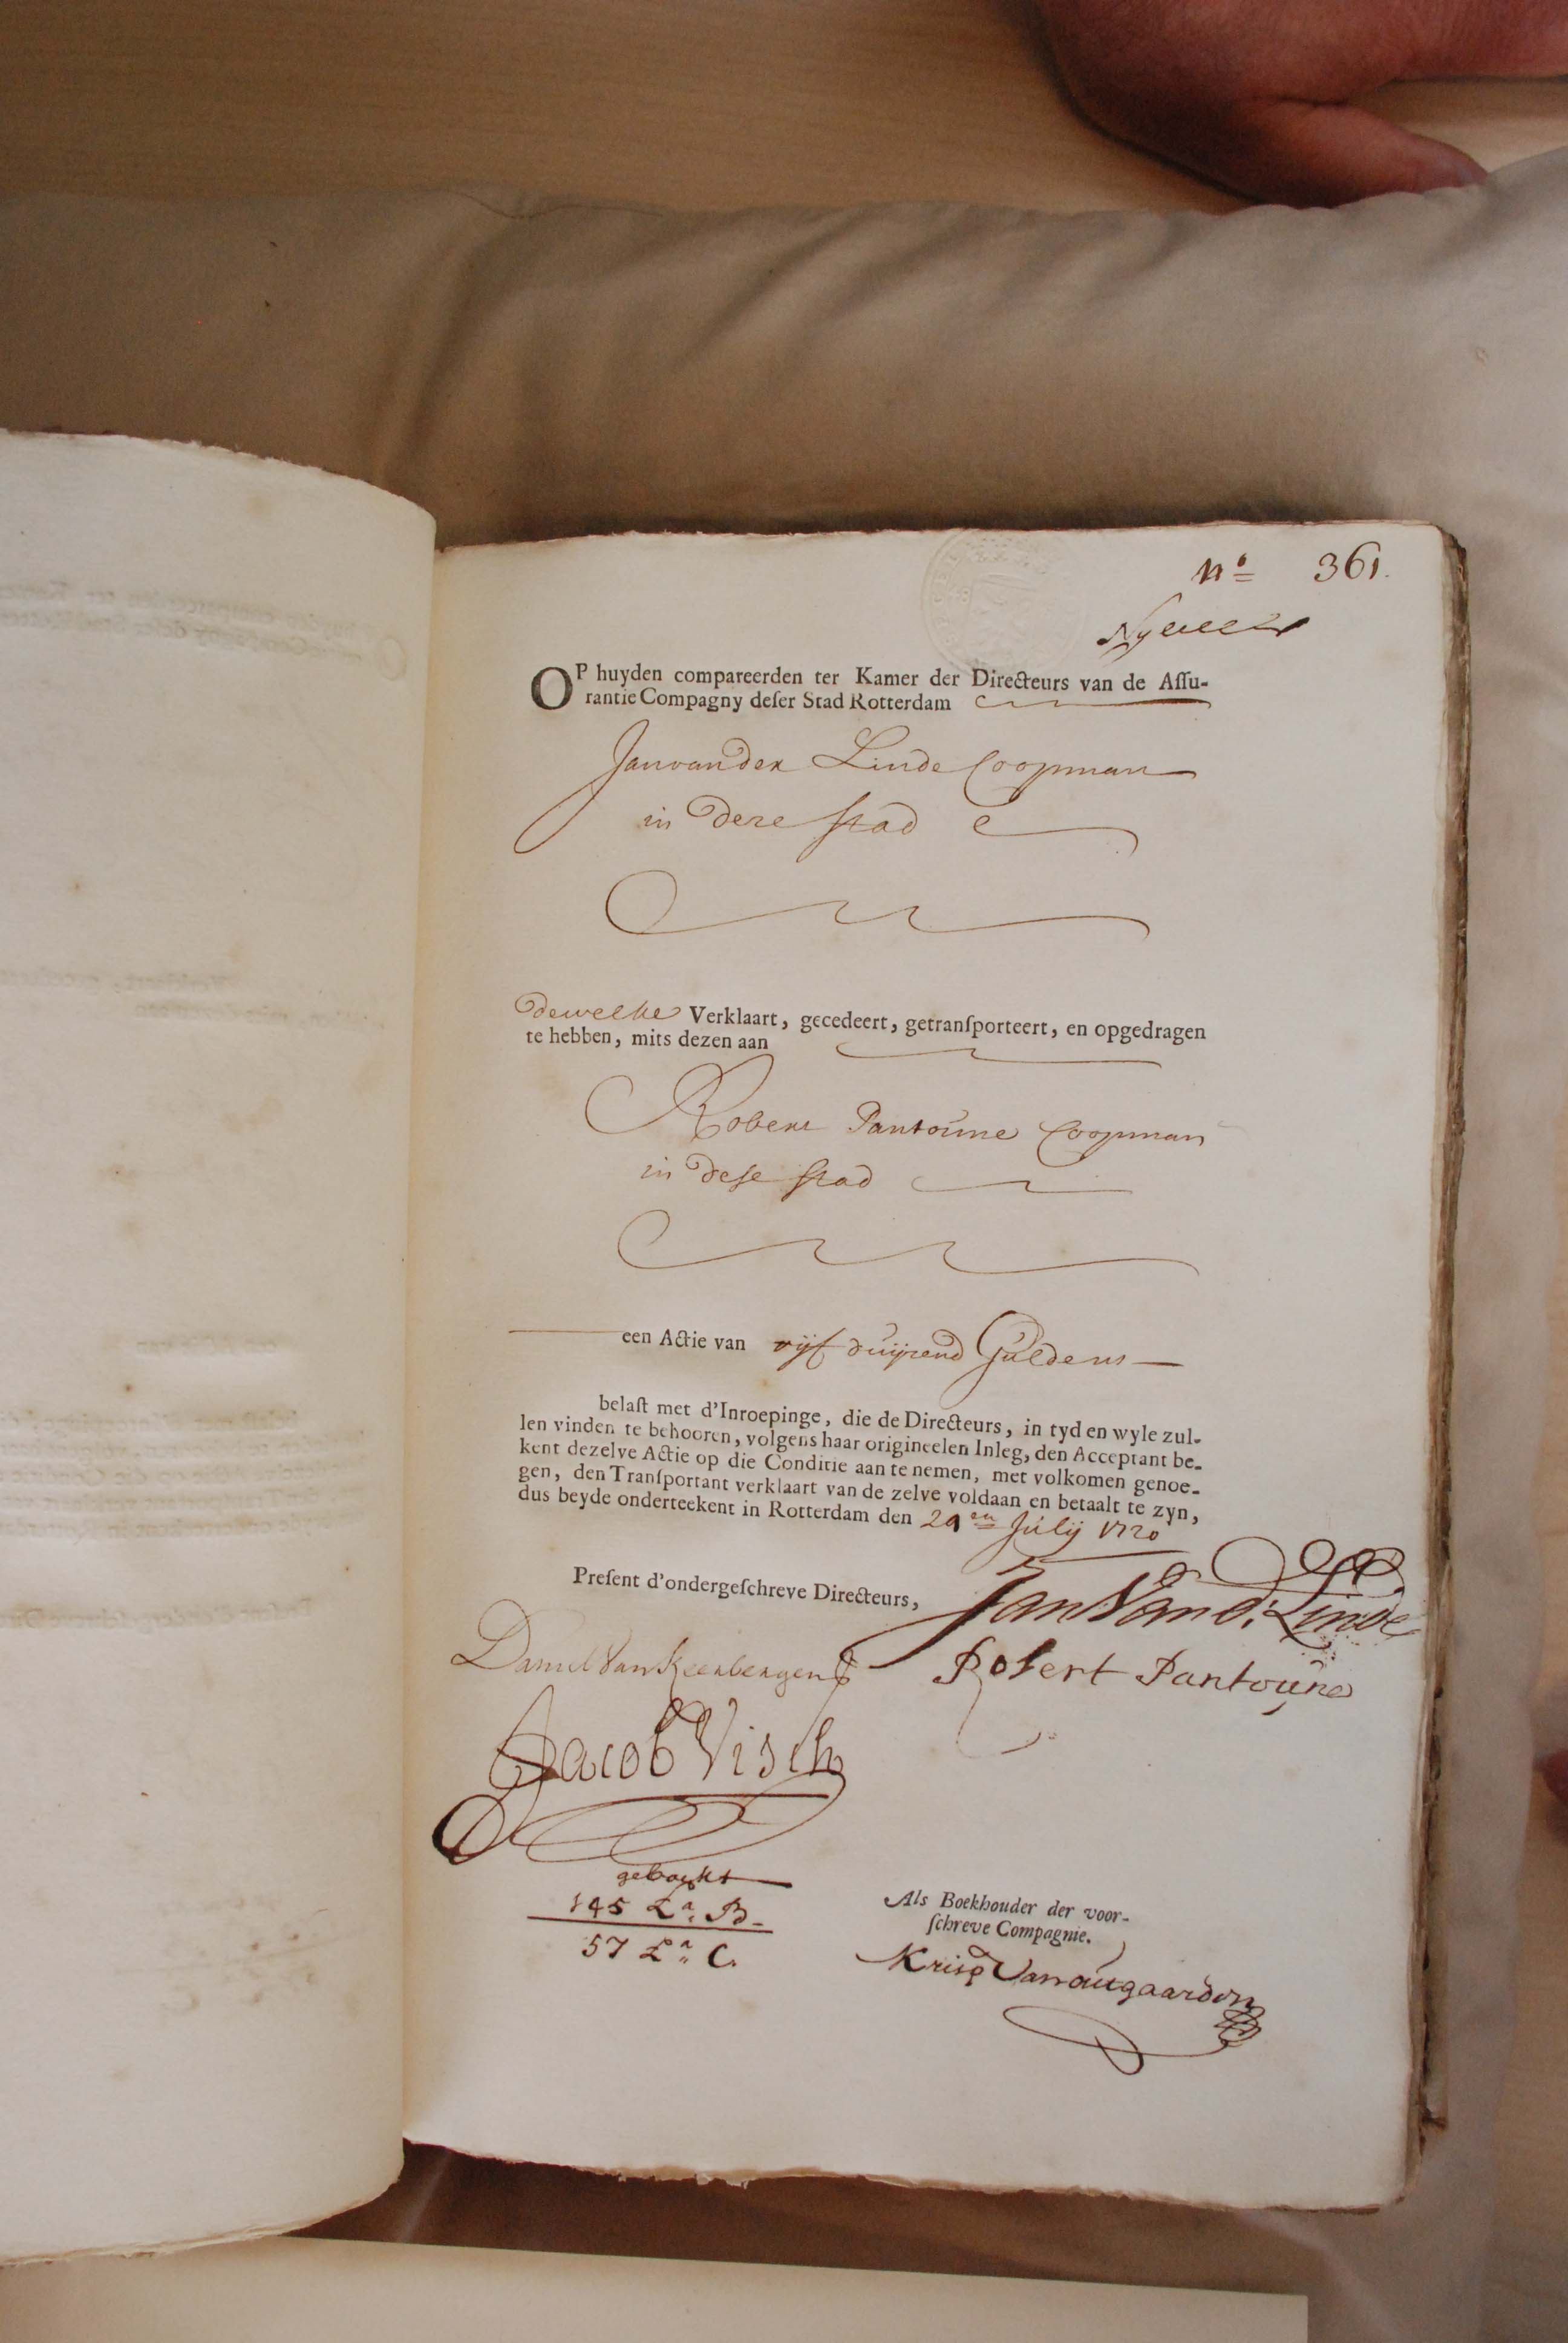 no 361.
OP huyden compareerden ter Kamer der Directeurs van de Assu-
rantie Compagny deser Stad Rotterdam
Jan van der Linde Coopman
in deze stad
dewelke Verklaart, gecedeert, getransporteert, en opgedragen
te hebben, mits dezen aan
Robert Pantoune Coopman
in dese stad
een Actie van vijf duijzend Guldens
belast met d'Inroepinge, die de Directeurs, in tyd en wyle zul-
len vinden te behooren, volgens haar origineelen Inleg, den Acceptant be-
kent dezelve Actie op die Conditie aan te nemen, met volkomen genoe-
gen, den Transportant verklaart van de zelve voldaan en betaalt te zyn,
dus beyde onderteekent in Rotterdam den 29en Julij 1720
Present d'ondergeschreve Directeurs,
Jan Van d: Linde
Daniel Van Keerbergen
Robert Pantoune
Jacob Visch
geboekt
145 La. B.
57 La. C.
Als Boekhouder der voor-
schreve Compagnie.
Krisp Van outgaarden